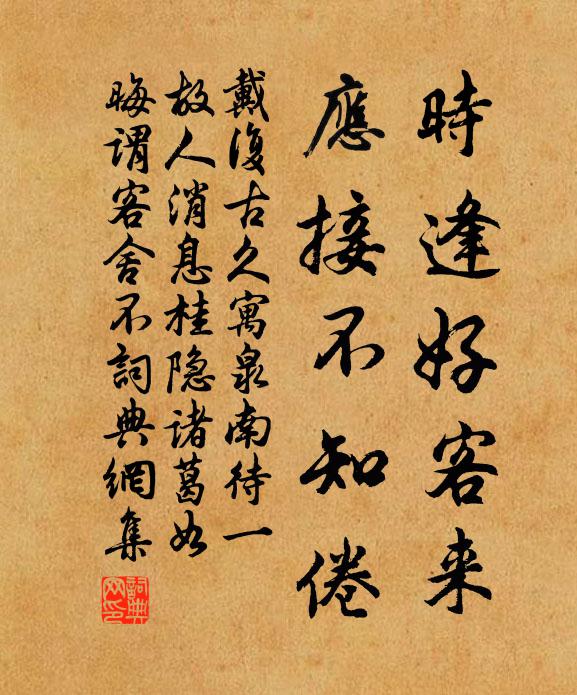 時逢好客来
應接不知倦
戴復古久寓泉南待一
故人消息桂隐诸葛如
晦謂客舍不詞典網集
詞典網印